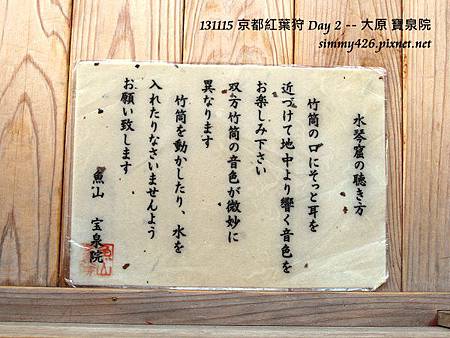 131115 京都紅葉狩 Day 2 -- 大原 寶泉院
simmy426.pixnet.net
水琴窟の聴き方
竹筒の口にそっと耳を
近づけて地中より響く音色を
お楽しみ下さい
双方竹筒の音色が微妙に
異なります
竹筒を動かしたり、水を
入れたりなさいませんよう
お願い致します
魚山 宝泉院
魚山